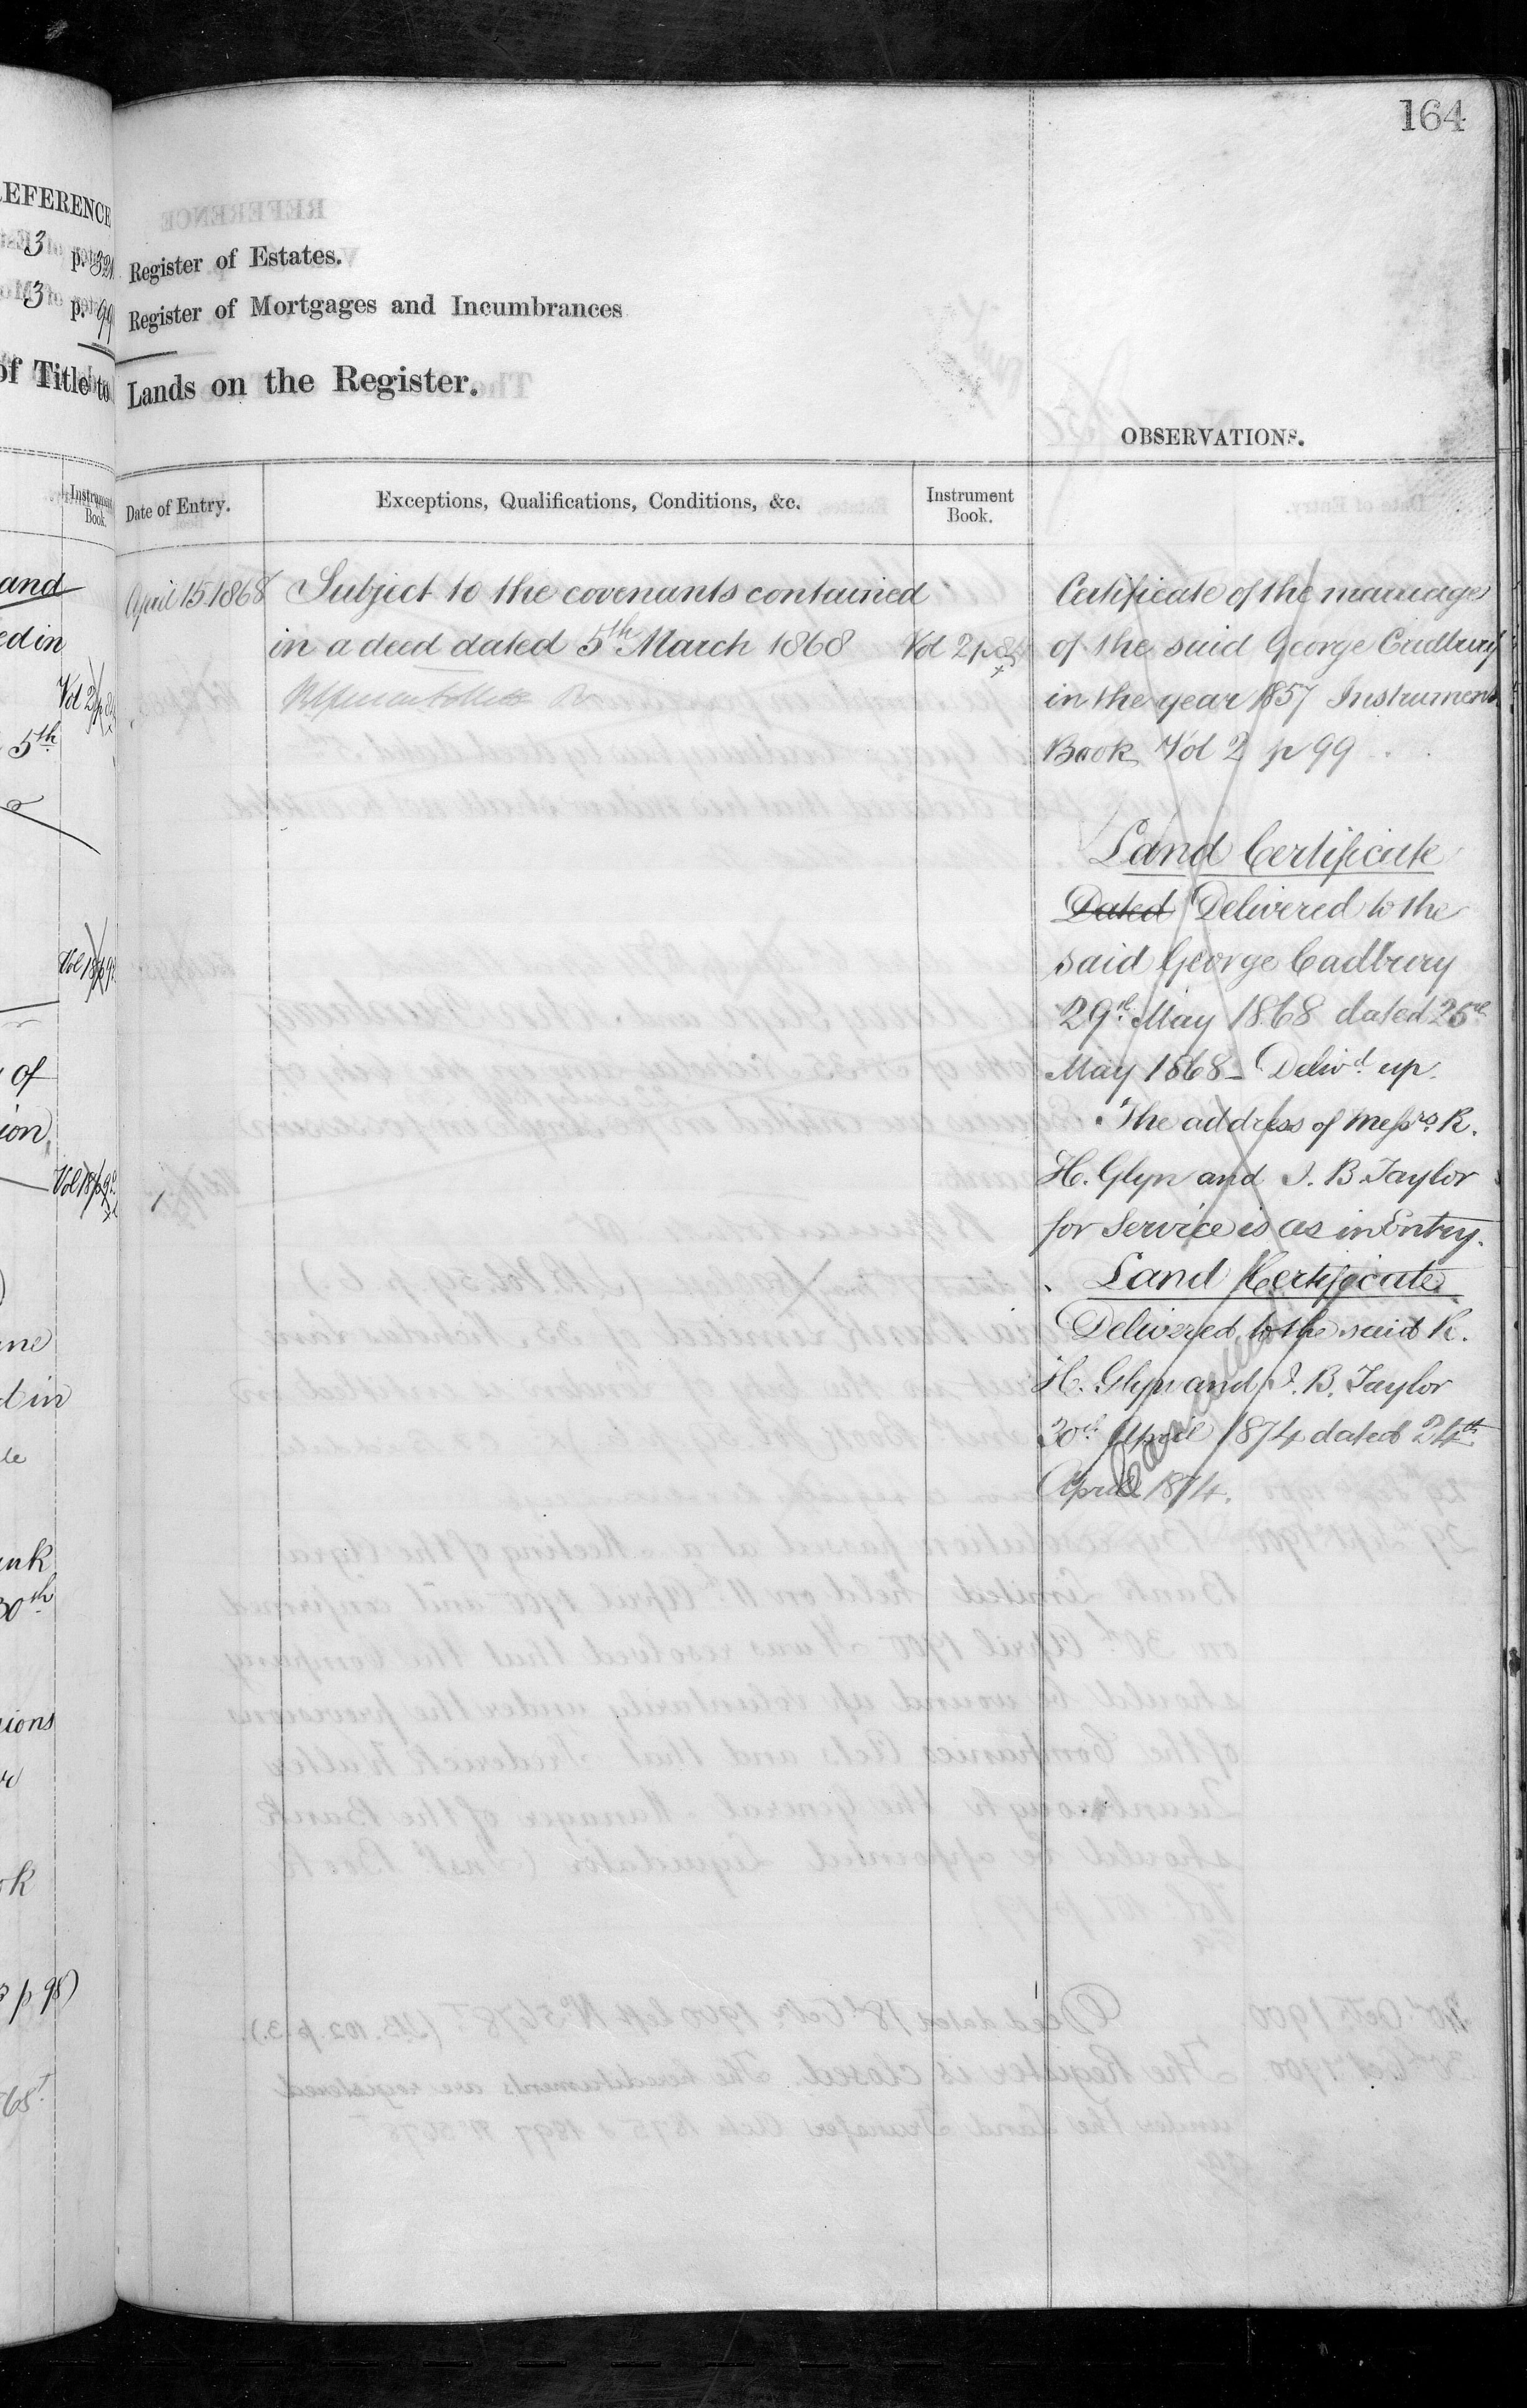 164
REFERENCE
3 p. 321
3 p. 99
of Title to
Instrument
Book.
and
ed in
Vol 2 p
5th
Vol 18 p 92
of
ion
Vol 18 p 92
ne
d in
te
ank
30th
ions
k
p 98)
Register of Estates.
Register of Mortgages and Incumbrances
Lands on the Register.
OBSERVATIONS.
Date of Entry.
Exceptions, Qualifications, Conditions, &c.
Instrument
Book.
April 15 1868
Subject to the covenants contained
in a deed dated 5th March 1868
Vol 2 p 85
Certificate of the marriage
of the said George Cadbury
in the year 1857 Instrument
Book Vol 2 p 99
Land Certificate
Dated Delivered to the
said George Cadbury
29th May 1868 dated 25th
May 1868 – Delivd. up.
The address of Messrs. R.
H. Glyn and J. B. Taylor
for Service is as in Entry.
Land Certificate
Delivered to the said R.
H. Glyn and J. B. Taylor
30th April 1874 dated 24th
April 1874.
Cancelled